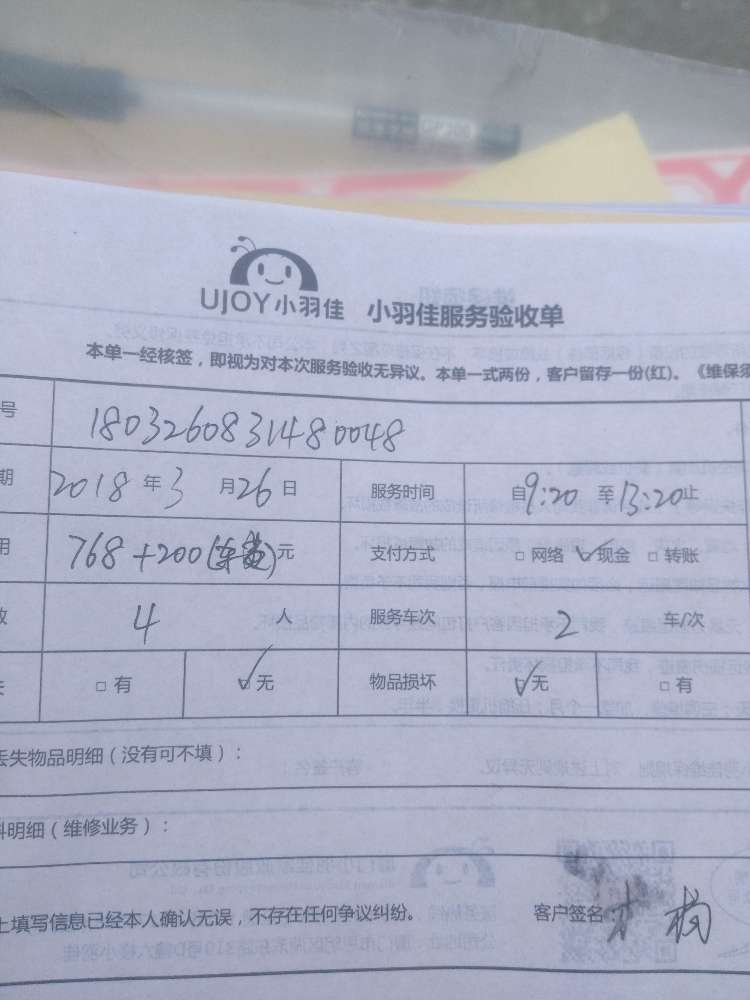 UJOY小羽佳 小羽佳服务验收单
本单一经核签，即视为对本次服务验收无异议。本单一式两份，客户留存一份(红)。《维保须
号 1803260831480048
期 2018年3月26日 服务时间 自9:20至13:20止
用 768+200(车费)元 支付方式 □网络 ✓现金 □转账
4人 服务车次 2车/次
□有 ✓无 物品损坏 ✓无 □有
丢失物品明细（没有可不填）：
料明细（维修业务）：
上填写信息已经本人确认无误，不存在任何争议纠纷。 客户签名：